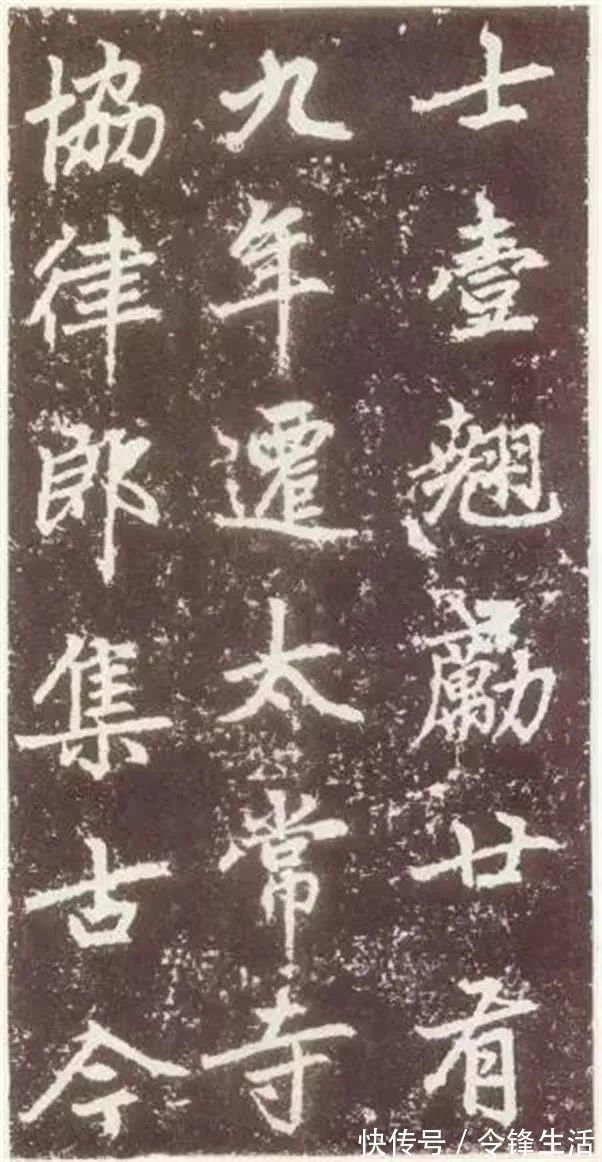 士壹翘勵廿有
九年遷太常寺
協律郎集古今
快传号/令锋生活